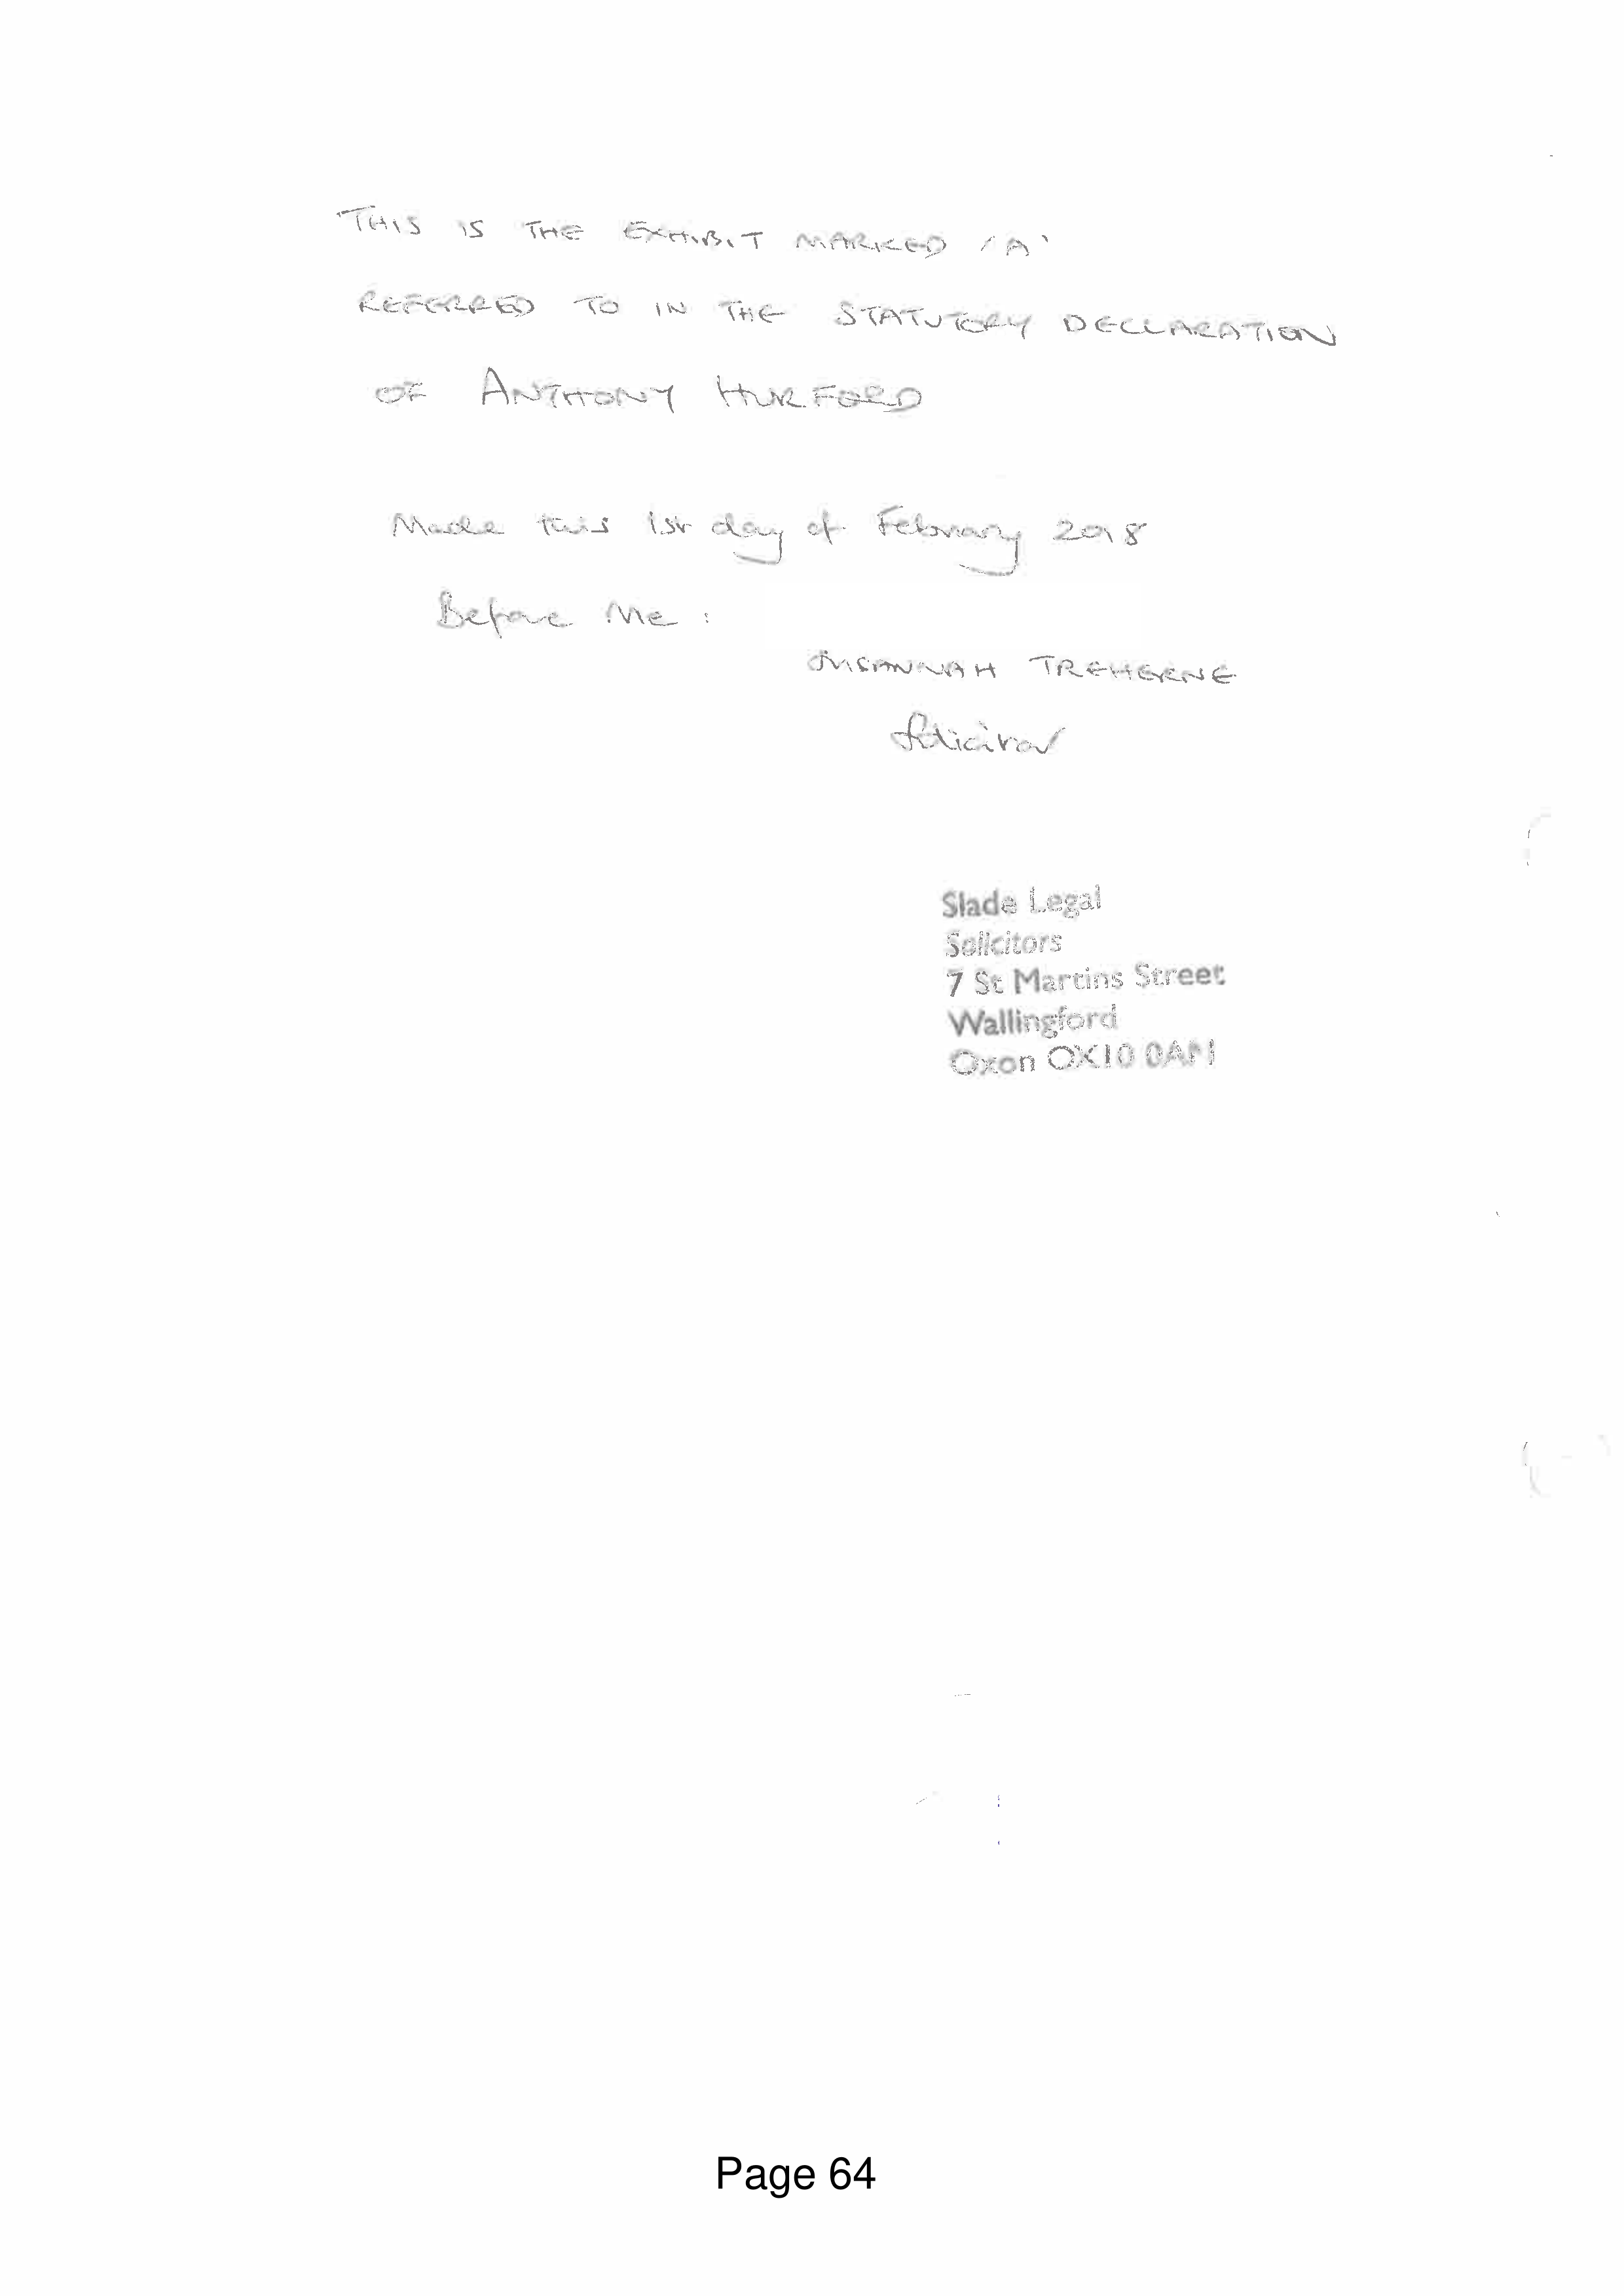 THIS IS THE EXHIBIT MARKED 'A'
REFERRED TO IN THE STATUTORY DECLARATION
OF ANTHONY HURFORD
Made this 1st day of February 2018
Before Me :
SUSANNAH TREHERNE
Solicitor
Slade Legal
Solicitors
7 St Martins Street
Wallingford
Oxon OX10 0AN
Page 64